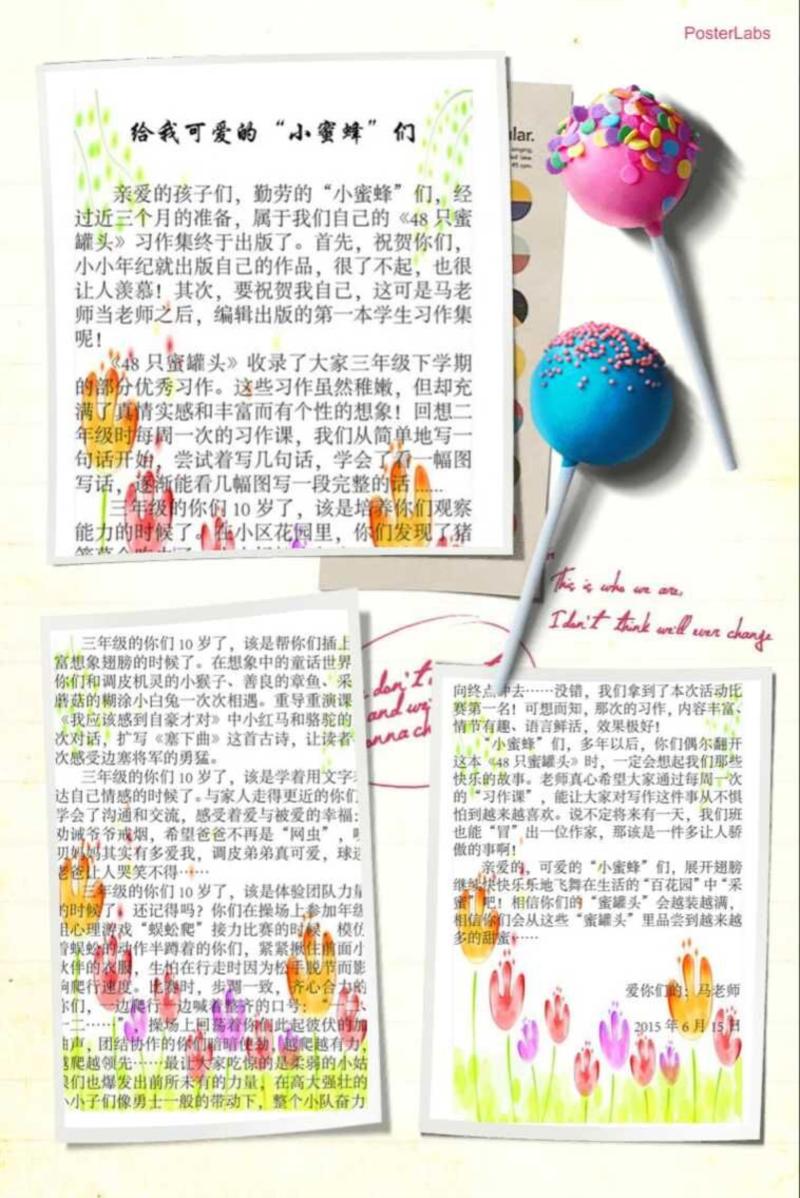 PosterLabs
给我可爱的“小蜜蜂”们
亲爱的孩子们，勤劳的“小蜜蜂”们，经
过近三个月的准备，属于我们自己的《48 只蜜
罐头》习作集终于出版了。首先，祝贺你们，
小小年纪就出版自己的作品，很了不起，也很
让人羡慕！其次，要祝贺我自己，这可是马老
师当老师之后，编辑出版的第一本学生习作集
呢！
《48 只蜜罐头》收录了大家三年级下学期
的部分优秀习作。这些习作虽然稚嫩，但却充
满了真情实感和丰富而有个性的想象！回想二
年级时每周一次的习作课，我们从简单地写一
句话开始，尝试着写几句话，学会了看一幅图
写话，逐渐能看几幅图写一段完整的话……
三年级的你们 10 岁了，该是培养你们观察
能力的时候了。在小区花园里，你们发现了猪
ular.
This is who we are,
I don't think we'll ever change
三年级的你们 10 岁了，该是帮你们插上
富想象翅膀的时候了。在想象中的童话世界
你们和调皮机灵的小猴子、善良的章鱼、采
蘑菇的糊涂小白兔一次次相遇。重导重演课
《我应该感到自豪才对》中小红马和骆驼的
次对话，扩写《塞下曲》这首古诗，让读者
次感受边塞将军的勇猛。
三年级的你们 10 岁了，该是学着用文字
达自己情感的时候了。与家人走得更近的你们
学会了沟通和交流，感受着爱与被爱的幸福：
劝诫爷爷戒烟，希望爸爸不再是“网虫”，
妈妈其实有多爱我，调皮弟弟真可爱，球迷
老爸让人哭笑不得……
三年级的你们 10 岁了，该是体验团队力量
的时候了。还记得吗？你们在操场上参加年级
组心理游戏“蜈蚣爬”接力比赛的时候，模仿
着蜈蚣的动作半蹲着的你们，紧紧揪住前面小
伙伴的衣服，生怕在行走时因为松手脱节而影
响爬行速度。比赛时，步调一致，齐心合力的
你们，一边爬行一边喊着整齐的口号：“一二
一二……”，操场上回荡着你们此起彼伏的加
油声，团结协作的你们暗暗使劲，越爬越有力，
越爬越领先……最让大家吃惊的是柔弱的小姑
娘们也爆发出前所未有的力量，在高大强壮的
小小子们像勇士一般的带动下，整个小队奋力
don't
and we
onna ch
向终点冲去……没错，我们拿到了本次活动比
赛第一名！可想而知，那次的习作，内容丰富、
情节有趣、语言鲜活，效果极好！
“小蜜蜂”们，多年以后，你们偶尔翻开
这本《48 只蜜罐头》时，一定会想起我们那些
快乐的故事。老师真心希望大家通过每周一次
的“习作课”，能让大家对写作这件事从不惧
怕到越来越喜欢。说不定将来有一天，我们班
也能“冒”出一位作家，那该是一件多让人骄
傲的事啊！
亲爱的，可爱的“小蜜蜂”们，展开翅膀
继续快快乐乐地飞舞在生活的“百花园”中“采
蜜”吧！相信你们的“蜜罐头”会越装越满，
相信你们会从这些“蜜罐头”里品尝到越来越
多的甜蜜……
爱你们的：马老师
2015 年 6 月 15 日